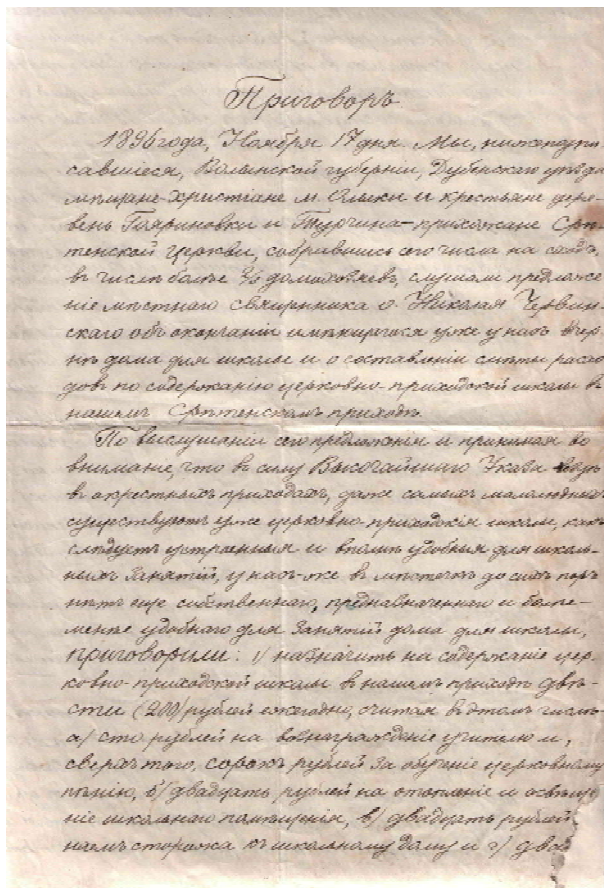 Приговоръ
1896 года, Ноября 17 дня. Мы, нижеподпи-
савшіеся, Волынской губерніи, Дубенскаго уѣзда
мѣщане-христіане м. Олыки и крестьяне дере-
вень и Турчина – прихожане Срѣ-
тенской Церкви, собравшись сего числа на сходъ,
въ числѣ болѣе 2/3 домохозяевъ, слушали предложе
ніе мѣстнаго священника о. Николая Червин-
скаго объ окончаніи имѣющагося уже у насъ
дома для школы и о составленіи смѣты расхо
довъ по содержанію церковно-приходской школы въ
нашемъ Срѣтенскомъ приходѣ.
По выслушаніи сего предложенія и принимая во
вниманіе, что въ силу Высочайшаго Указа вездѣ
въ окрестныхъ приходахъ, даже самыхъ малолюдныхъ
существуютъ уже церковно-приходскія школы, какъ
слѣдуетъ устроенныя и вполнѣ удобныя для школь-
ныхъ занятій, у насъ-же въ мѣстечкѣ до сихъ поръ
нѣтъ еще собственнаго, предназначеннаго и болѣе-
менѣе удобнаго для занятій дома для школы,
приговорили: 1/ назначить на содержаніе цер-
ковно-приходской школы въ нашемъ приходѣ двѣ-
сти (200) рублей ежегодно, считая въ этомъ числѣ
а/ сто рублей на вознагражденіе учителю и,
сверхъ того, сорокъ рублей за обученіе церковному
пѣнію, б/ двадцать рублей на отопленіе и освѣще
ніе школьнаго помѣщенія, в/ двадцать рублей
наемъ сторожа къ школьному дому и г/